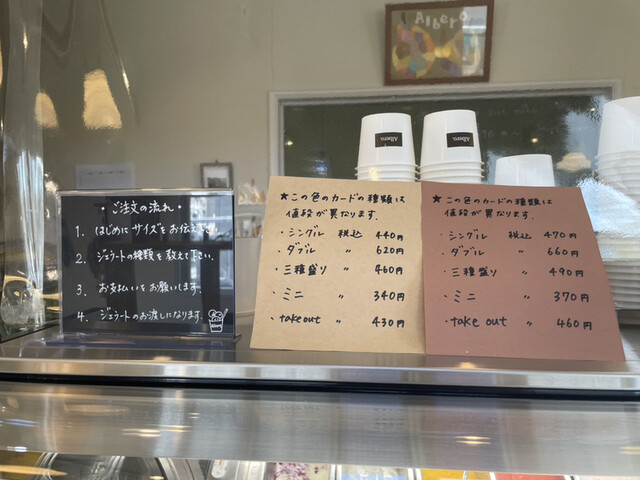 Albero
Albero
Albero
・ご注文の流れ・
1. はじめにサイズをお伝え下さい.
2. ジェラートの種類を教えて下さい.
3. お支払いをお願いします.
4. ジェラートのお渡しになります.
★この色のカードの種類は
値段が異なります.
・シングル 税込 440円
・ダブル 〃 620円
・三種盛り 〃 460円
・ミニ 〃 340円
・takeout 〃 430円
★この色のカードの種類は
値段が異なります.
・シングル 税込 470円
・ダブル 〃 660円
・三種盛り 〃 490円
・ミニ 〃 370円
・take out 〃 460円